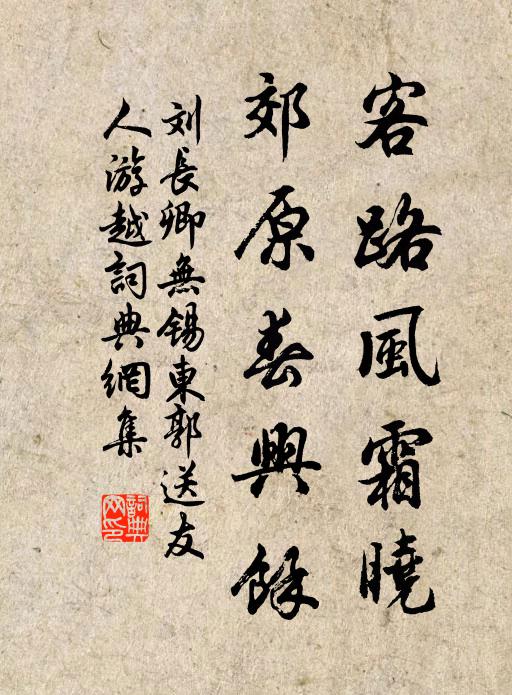 客路風霜曉
郊原春興餘
刘長卿無锡東郭送友
人游越詞典網集
詞典
网印